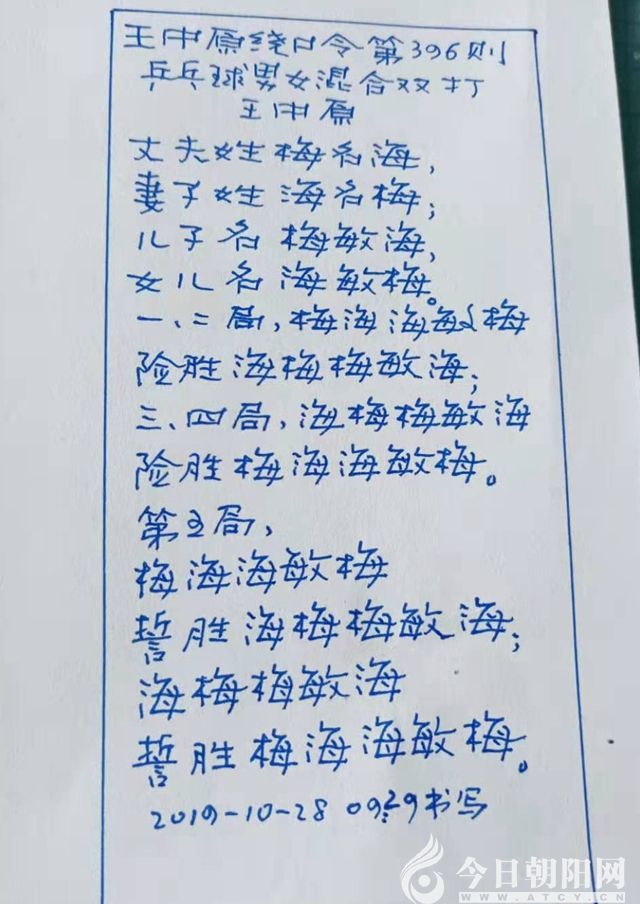 王中原绕口令第396则
乒乓球男女混合双打
王中原
丈夫姓梅名海,
妻子姓海名梅;
儿子名梅敏海,
女儿名海敏梅。
一、二局,梅海海敏梅
险胜海梅梅敏海;
三、四局,海梅梅敏海
险胜梅海海敏梅。
第五局,
梅海海敏梅
誓胜海梅梅敏海;
海梅梅敏海
誓胜梅海海敏梅。
2019-10-28 09:29书写
今日朝阳网
WWW.ATCY.CN